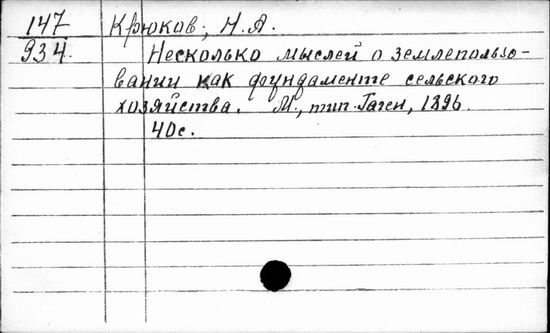 147 Крюков, Н.А.
934. Несколько мыслей о землепользо-
вании как фундаменте сельского
хозяйства. М., тип. Гаген, 1896.
40с.